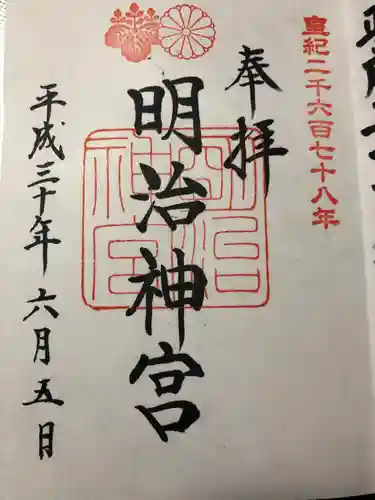 皇紀二千六百七十八年
奉拝
明治神宮
明治神宮
平成三十年六月五日